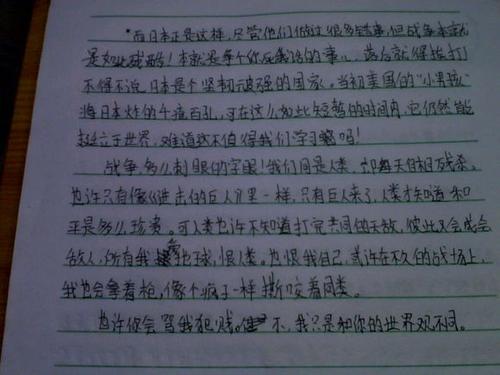 而日本正是这样,尽管他们做过很多错事,但战争本就
是如此残酷!本就是争个你死我活的事儿,落后就得挨打
不得不说,日本是个坚韧顽强的国家。当初美国的“小男孩”
将日本炸的千疮百孔,可在这么如此短暂的时间内,它仍然能
挺立于世界,难道这不值得我们学习嘛吗!
战争,多么刺眼的字眼!我们同是人类,却每天自相残杀。
也许只有像《进击的巨人》里一样,只有巨人来了,人类才知道和
平是多么珍贵。可人类也许不知道打完共同的天敌,彼此又会成会
敌人,所有我地球,恨人类。也恨我自己,或许在不久的战场上,
我也会拿着枪,像个疯子一样撕咬着同类。
也许你会骂我犯贱。不,我只是和你的世界观不同。